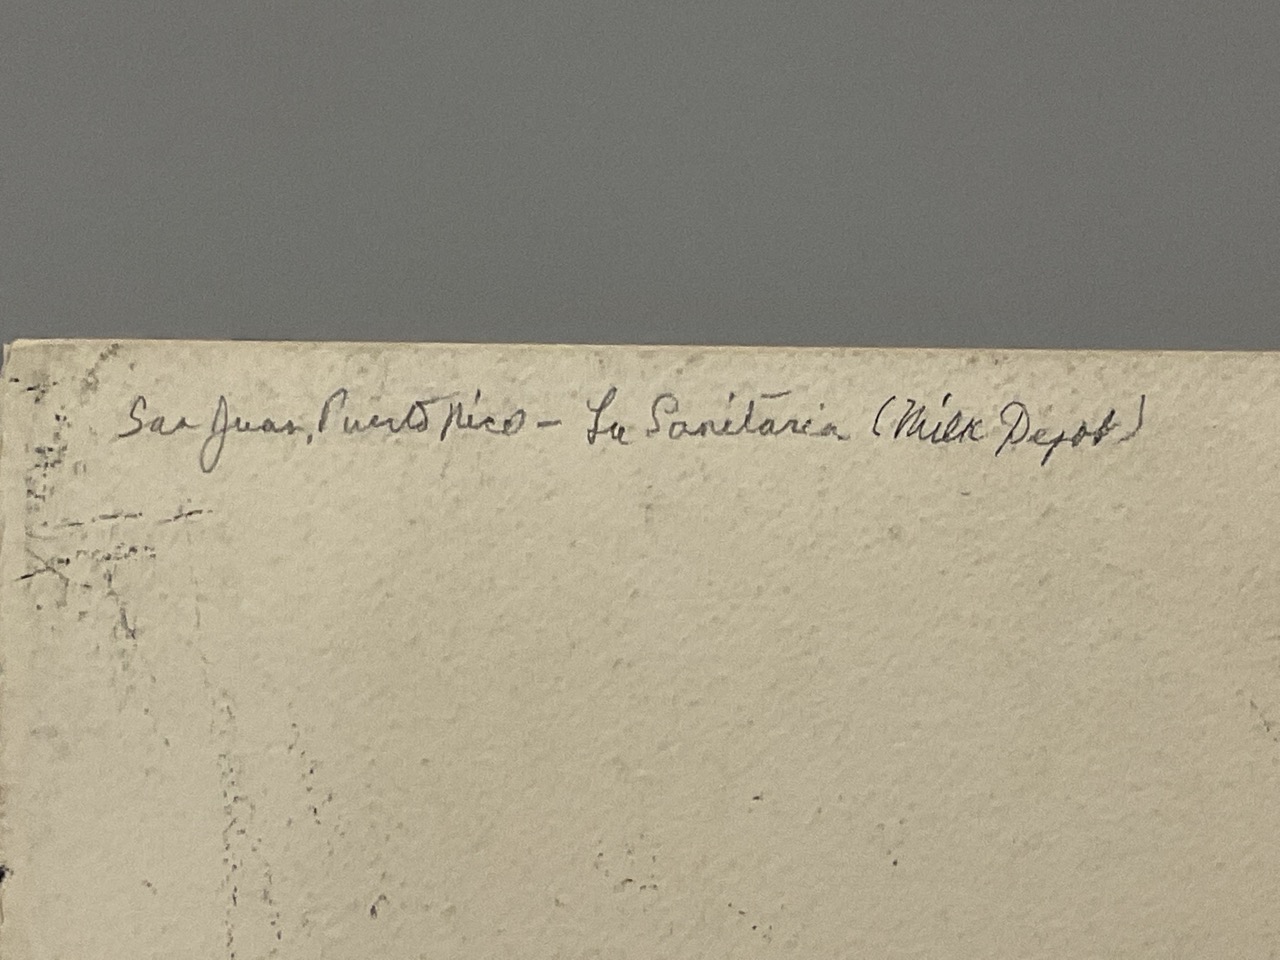 San Juan, Puerto Rico – La Sanitaria (Milk Depot)